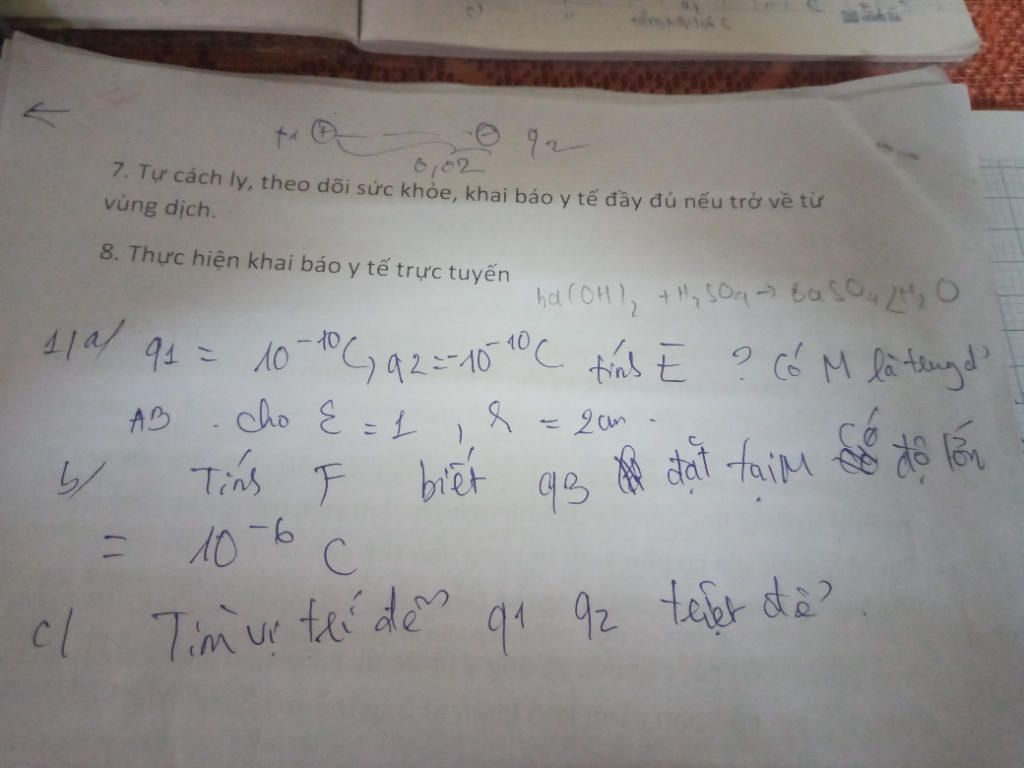 tổng hợp C
0,02
q2
7. Tự cách ly, theo dõi sức khỏe, khai báo y tế đầy đủ nếu trở về từ
vùng dịch.
8. Thực hiện khai báo y tế trực tuyến
ba(OH)₂ + H₂SO₄ → BaSO₄ 2H₂O
1/a/ q1 = 10⁻¹⁰C, q2 = -10⁻¹⁰C tính E ? Có M là trung đ'
AB . cho ε = 1 , r = 2cm .
b/ Tính F biết q3 đặt tại M có độ lớn
= 10⁻⁶ C
c/ Tìm vị trí để q1 q2 triệt